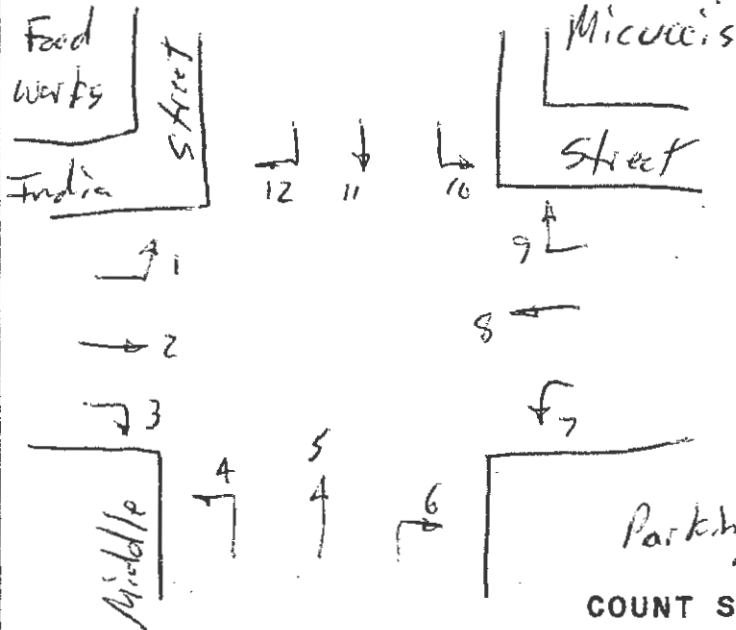 Food
works
Street
Micuccis
India
Street
12 11 10
1
9
2
8
3
7
4
5
6
Middle
COUNT S